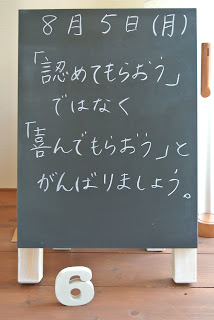 8月5日(月)
「認めてもらおう」
ではなく
「喜んでもらおう」と
がんばりましょう。
6